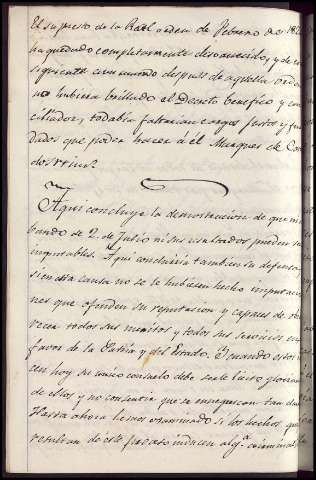 El supuesto de la Real orden de Febrero de 182
ha quedado completamente desvanecido, y de con
siguiente aun cuando despues de aquella orden
no hubiera brillado el Decreto benefico y con
ciliador, todabia faltarian cargos justos y fun
dados que poder hacer á él Marques de Ca
Aqui concluye la demostracion de que ni
bando de 2 de Julio ni sus resultados pueden se
imputables. Aqui concluiria tambien su defensa
si en esta causa no se le hubiesen hecho imputacio
nes que ofenden su reputacion y capaces de os
recer todos sus meritos y todos sus servicios en
favor de la Patria y del Estado. Quando estos
cen hoy su unico consuelo debe serle licito gloriarse
de ellos y no consentir que se ennegrezcan tan
Hasta ahora hemos examinado si los hechos que
resultan de este proceso inducen algª. criminal